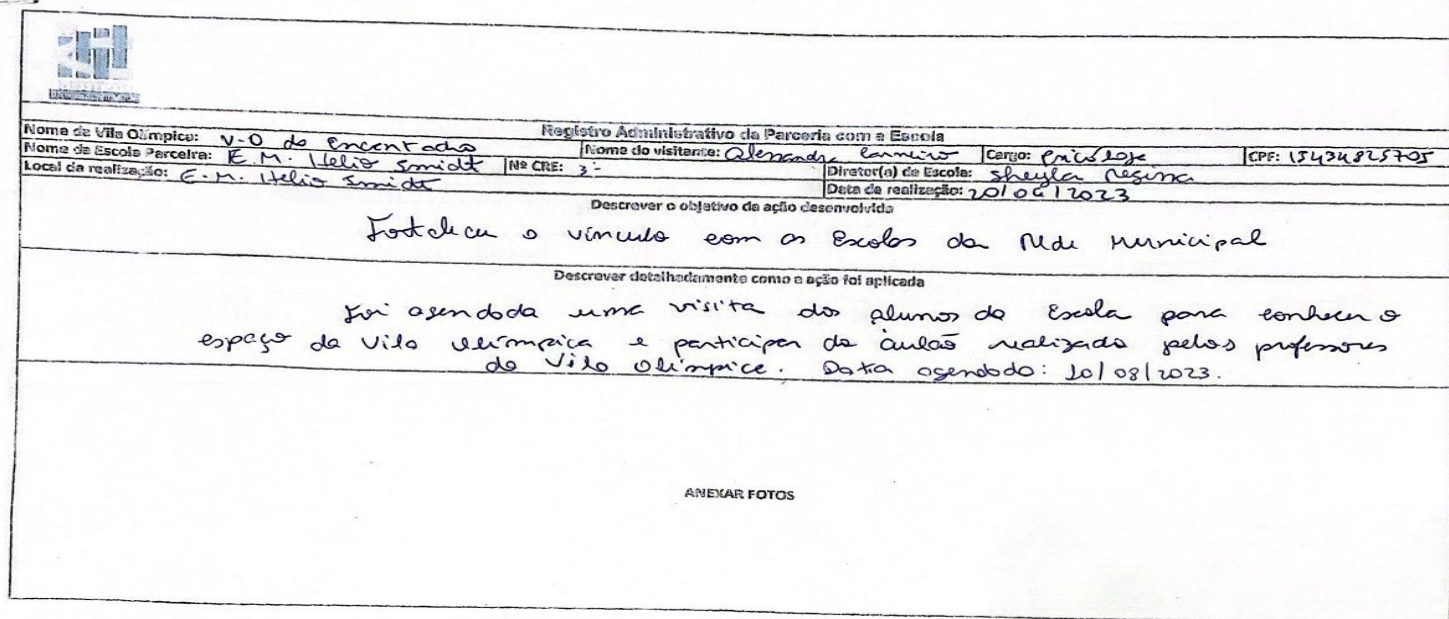 Registro Administrativo da Parceria com a Escola
Nome da Vila Olímpica: V-O do Encantado
Nome da Escola Parceira: E.M. Helio Smidt Nº CRE: 3ª Nome do visitante: Alessandra Carneiro Cargo: Psicóloga CPF: 15434825705
Local da realização: E.M. Helio Smidt Diretor(a) da Escola: Sheyla Regina
Data de realização: 20/06/2023
Descrever o objetivo da ação desenvolvida
Fortalecer o vínculo com as Escolas da Rede Municipal
Descrever detalhadamente como a ação foi aplicada
Foi agendada uma visita dos alunos da Escola para conhecer o
espaço da Vila Olímpica e participar do aulão realizado pelos professores
da Vila Olímpica. Data agendada: 10/08/2023.
ANEXAR FOTOS